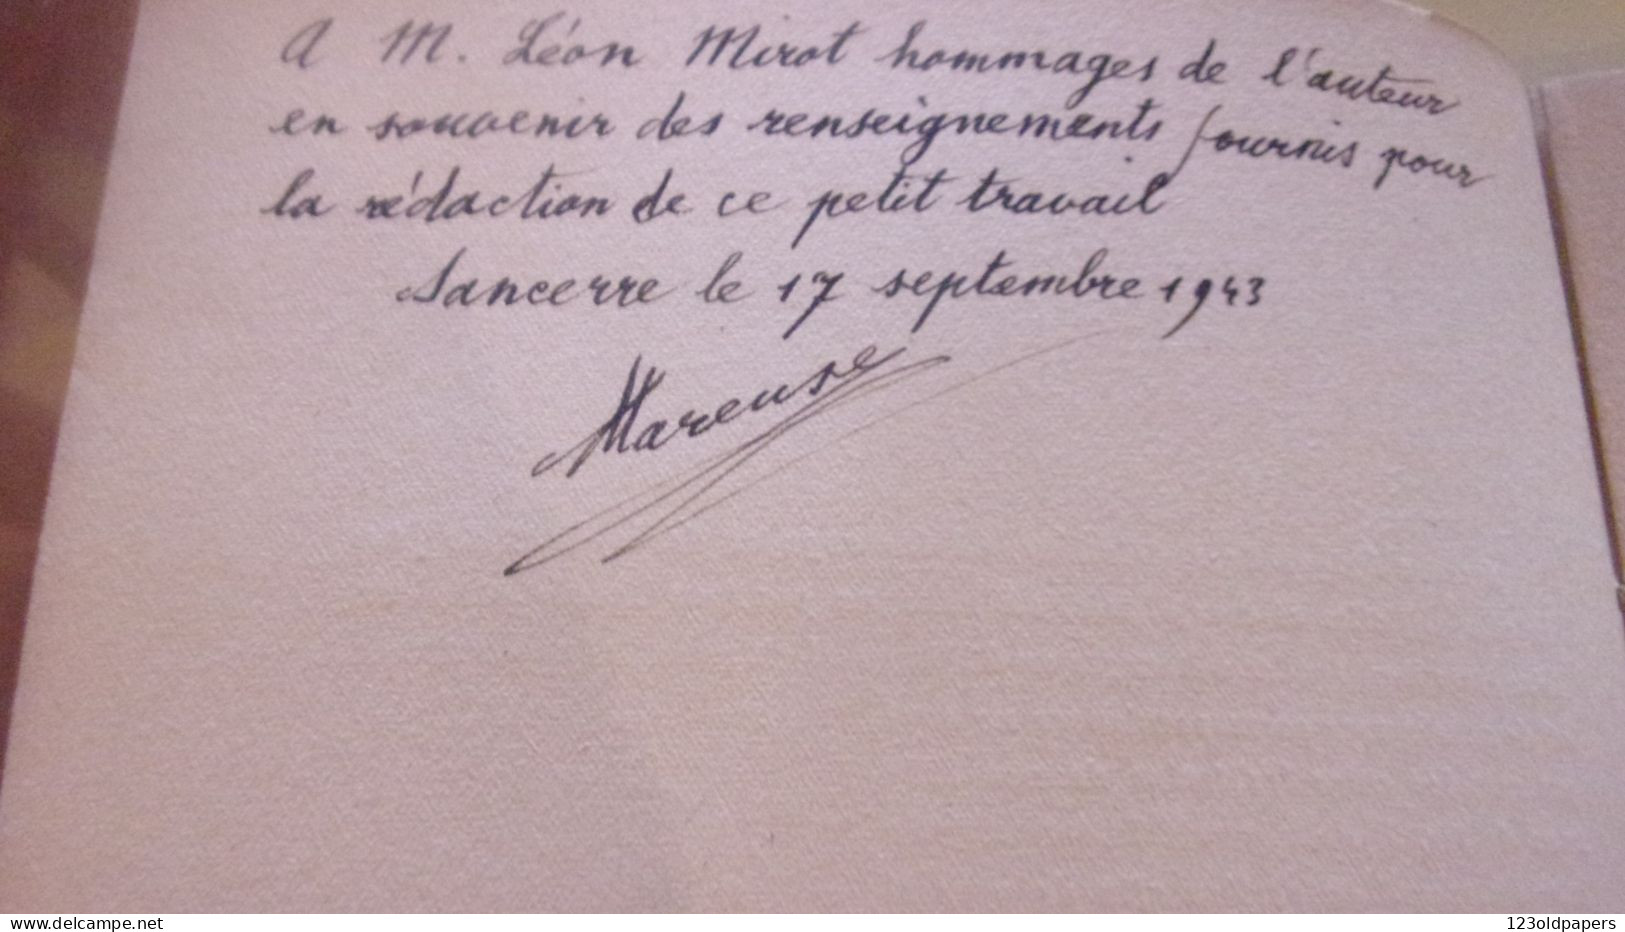 A M. Léon Mirot hommages de l'auteur
en souvenir des renseignements fournis pour
la rédaction de ce petit travail
Sancerre le 17 septembre 1943
Mareuse
delcampe.net
123oldpapers